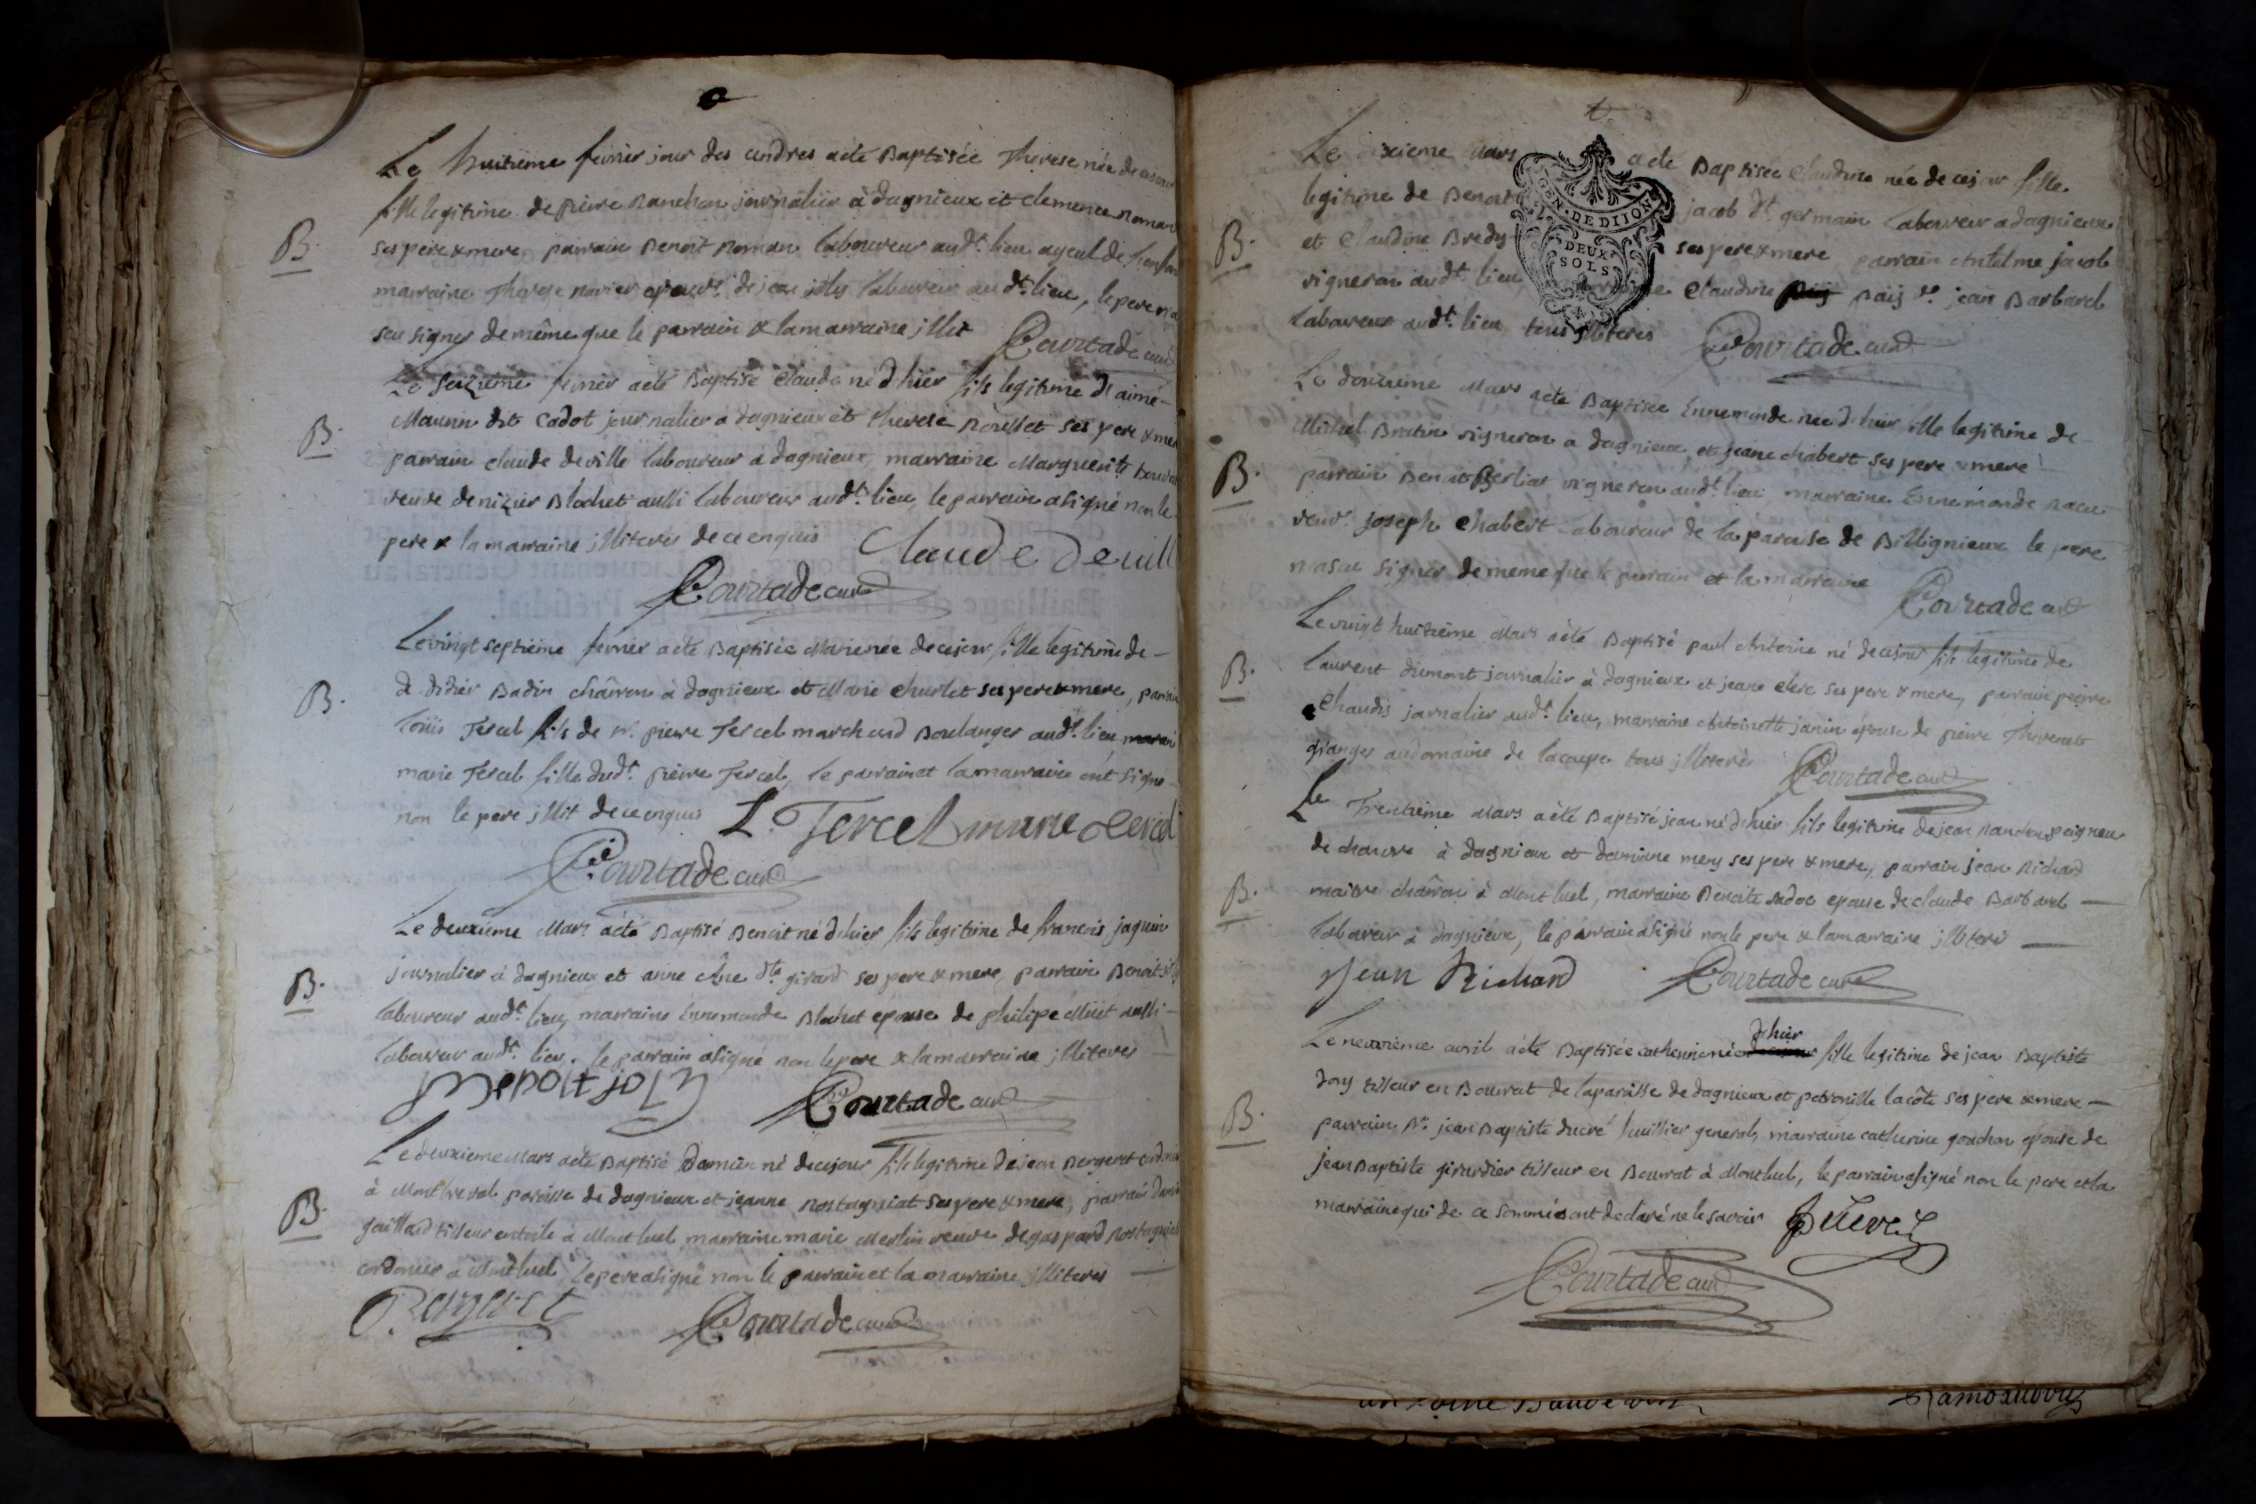 Le huitième fevrier jour des cendres a été Baptisée Therese née de ce jour
fille legitime de pierre nanchon journalier à dagnieux et clemence Roman
ses pere & mere, parrain Benoit Roman laboureur aud.t lieu ayeul de l'enfan
B.
marraine Therese epouse de jean joly laboureur aud.t lieu, le pere n'a
seu signer de même que le parrain & la marraine illit Courtade curé
Le seizieme fevrier a été Baptisé Claude né d'hier fils legitime d'aimé
B.
Maunin dit Cadot journalier a dagnieux et therese Roüsset ses pere & mer
parrain claude deville laboureur a dagnieux, marraine Marguerite
veuve de nizier Blochet aussi laboureur aud.t lieu, le parrain a signé non le
pere & la marraine illiterés de ce enquis Claude Devill
Courtade curé
Le vingt septieme fevrier a été Baptisée Marie née de ce jour fille legitime de
B.
de didier Badin chârron à dagnieux et Marie churlet ses pere & mere, parrai
loüis Tercel fils de s.r pierre Tercel marchand Boulanger aud.t lieu marai
marie Tercel fille dud.t pierre Tercel, le parrain et la marraine ont signé
non le pere illit de ce enquis L. Tercel marie Tercel
Courtade curé
Le deuxieme Mars a été Baptisé Benoit né d'hier fils legitime de francois jaquin
B.
journalier à dagnieux et girard ses pere & mere, parrain Benoit
laboureur aud.t lieu, marraine Ennemonde Blochet epouse de philipe Miiet aussi
laboureur aud.t lieu. le parrain a signé non le pere & la marraine illiteres
Benoit joly Courtade curé
Le deuxieme Mars a été Baptisé Damien né de ce jour fils legitime de jean Bergeret
B.
à Montluel paroisse de dagnieux et jeanne Rostagnat ses pere & mere, parrain
gaillard tisseur en toile a Montluel, marraine marie Merlin veuve de gaspard Rostagnat
cordonier a Montluel le pere a signé non le parrain et la marraine illiteres
Bergeret Courtade curé
Le dixieme Mars a été Baptisée Claudine née de ce jour fille
legitime de Benoit jacob d.t germain laboureur a dagnieux
B.
et Claudine Bredy ses pere & mere, parrain Antelme jacob
vigneron aud.t lieu, marraine Claudine païj v.e jean Barbarel
laboureur aud.t lieu tous illiteres Courtade curé
GEN. DE DIJON
DEUX
SOLS
Le douzieme Mars a été Baptisée Ennemonde née d'hier fille legitime de
Michel Bratin vigneron a dagnieux, et jeane chabert ses pere & mere
B.
parrain Benoit Berliat vigneron aud.t lieu, marraine Ennemonde
veuve joseph chabert laboureur de la paroise de Billignieux le pere
n'a seu signer de meme que le parrain et la marraine Courtade curé
Le vingt huitieme Mars a été Baptisé paul Antoine né de ce jour fils legitime de
B.
Laurent dumont journalier à dagnieux et jeane clerc ses pere & mere, parrain pierre
Chaudis jornalier aud.t lieu, marraine Antoinette janin epouse de pierre Thevenet
granger au domaine de la coupe tous illiterés Courtade curé
Le Trentieme Mars a été Baptisé jean né d'hier fils legitime de jean peigneur
de chanvre à dagnieux et damiane mery ses pere & mere, parrain jean Richard
B.
maitre chârron à Mont luel, marraine Benoite Sadoc epouse de claude Barbarel
laboureur à dagnieux, le parrain a signé non le pere & la marraine illiteré
Jean Richard Courtade curé
Le neuvieme avril a été Baptisée catherine née d'hier fille legitime de jean Baptiste
tisseur en Bourrat de la paroisse de dagnieux et petronille lacôte ses pere & mere
B.
parrain s.r jean Baptiste ducré huissier general, marraine catherine gonchon epouse de
jean Baptiste girardier tisseur en Bourrat à Montluel, le parrain a signé non le pere et la
marraine qui de ce sommés ont declaré ne le savoir
Courtade curé